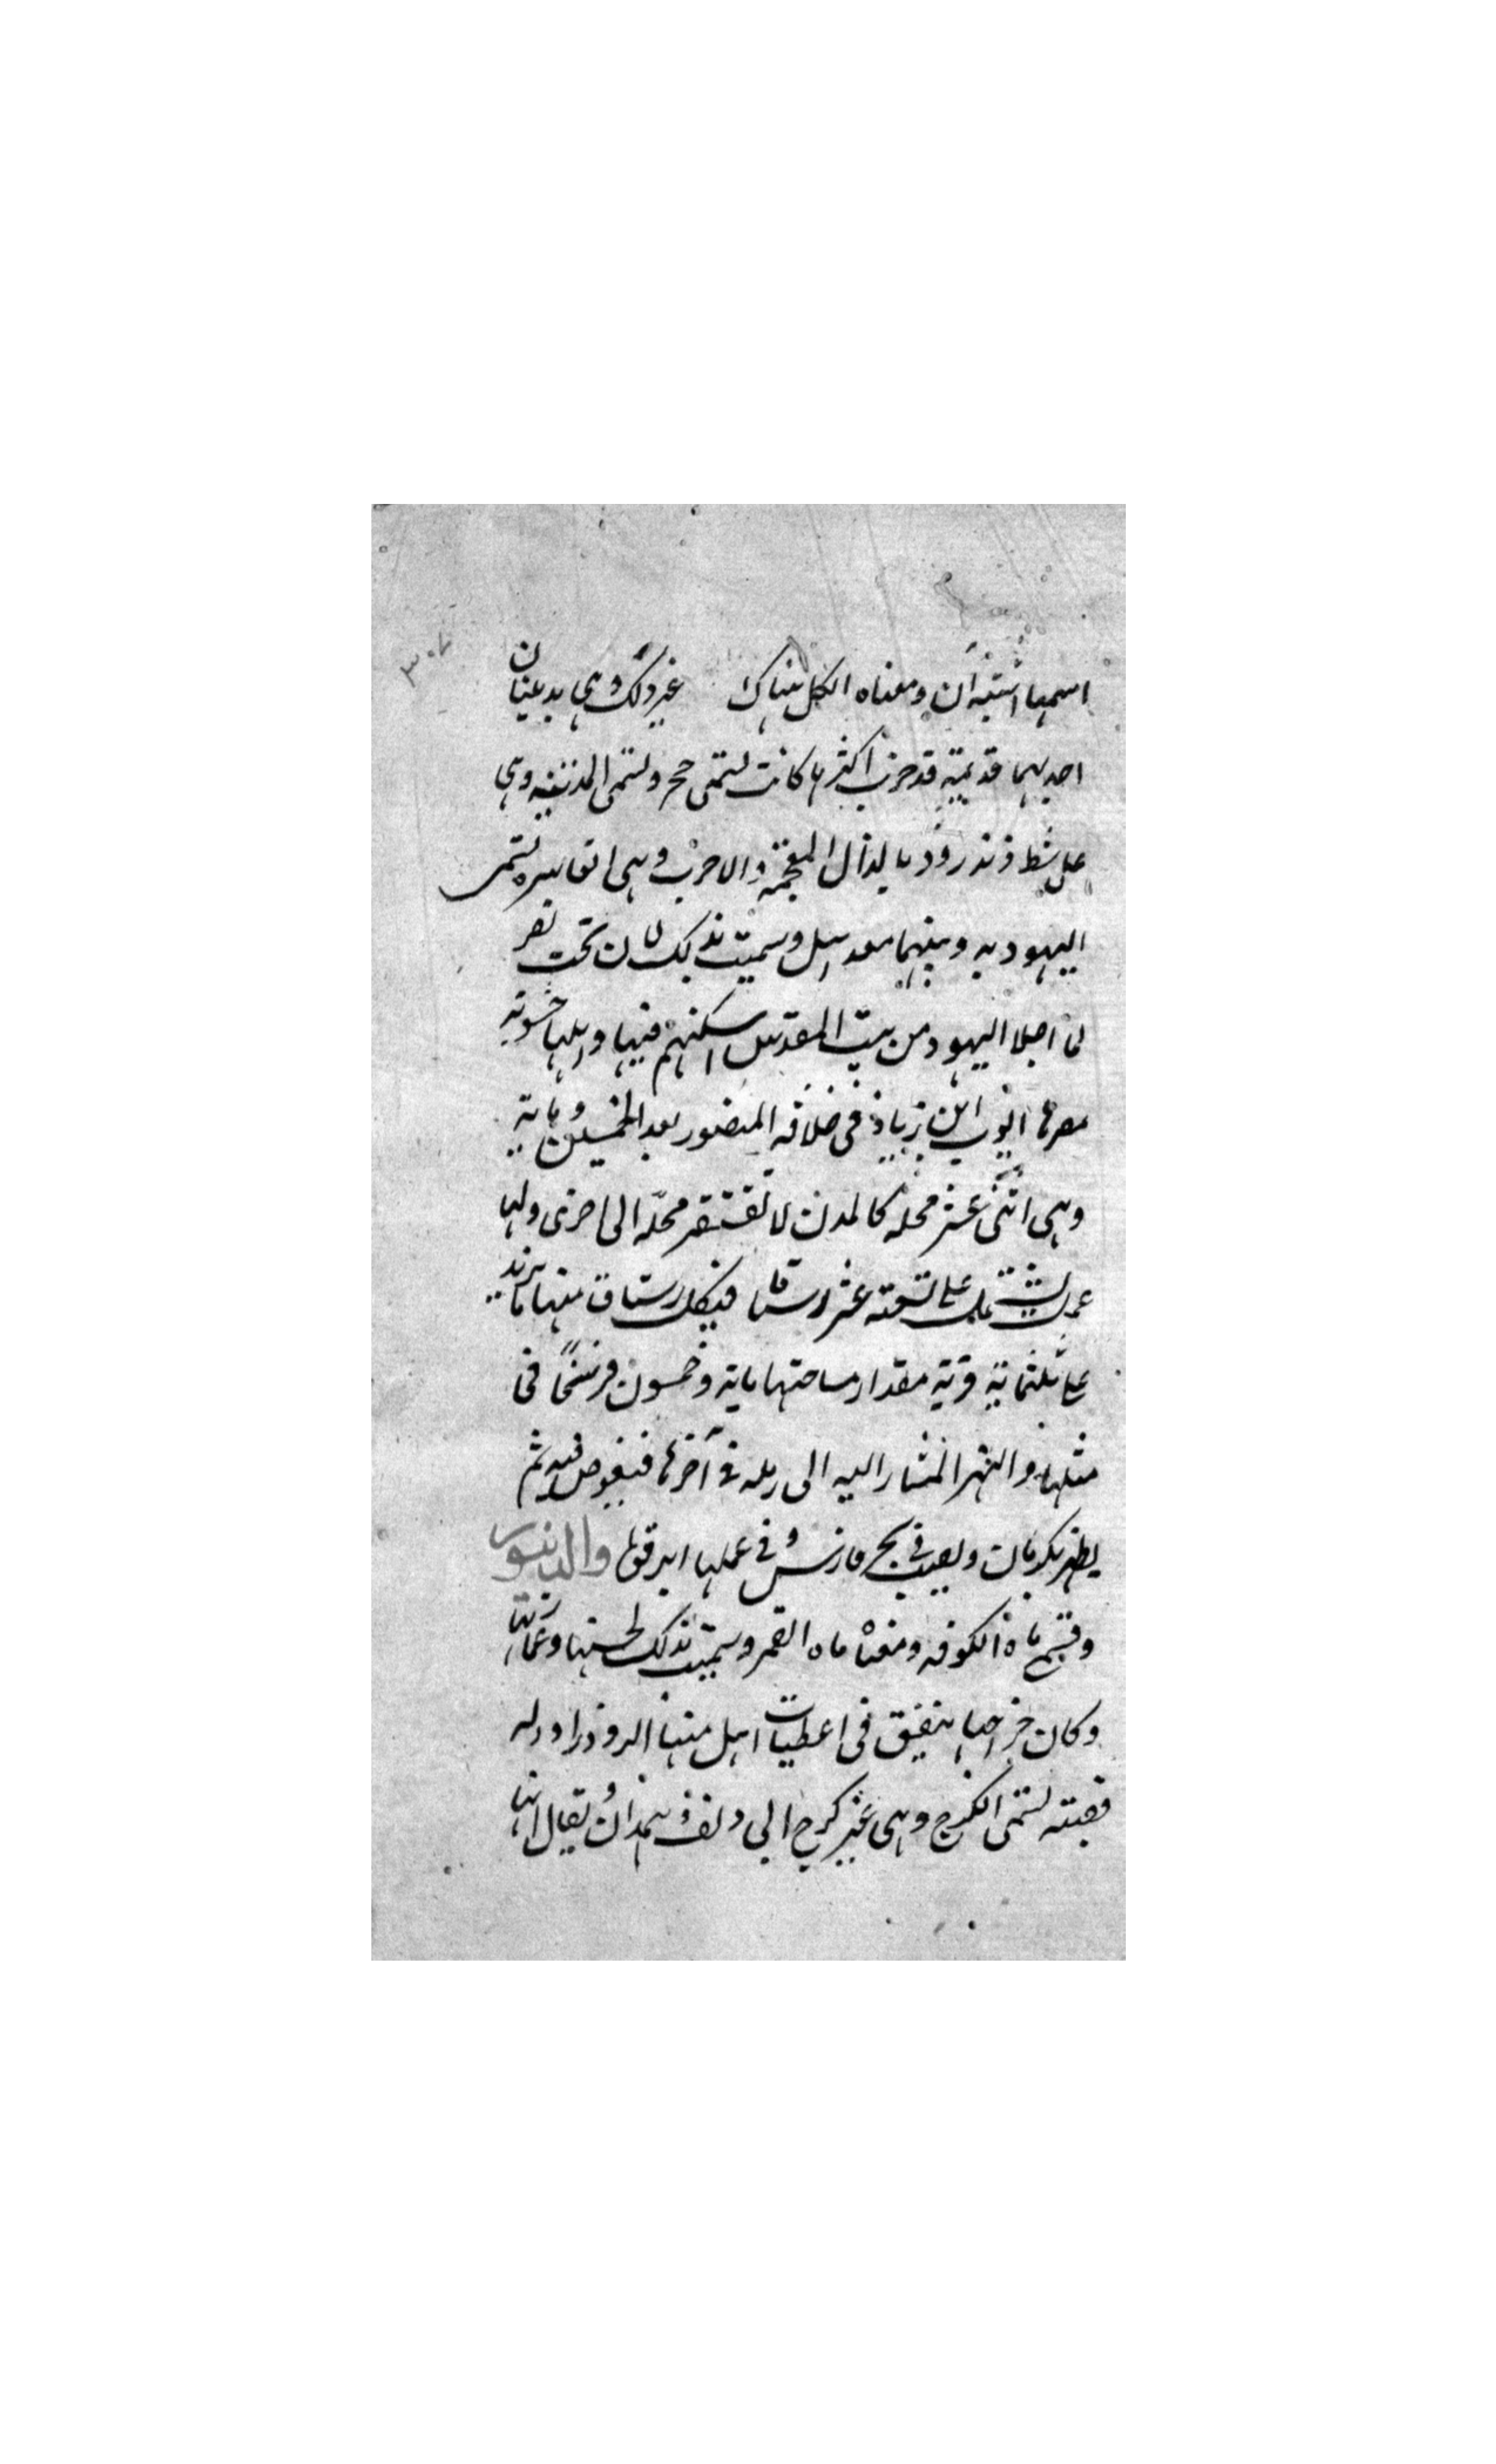 ٣٠٧
اسمها اشتبهان ومعناه الكل هناك غير ذلك وهي مدينتان
احديهما قديمة قد خرب اكثرها كانت تسمى جي وتسمى المدينة وهي
على شط زندرود بالذال المعجمة والاخرى وهي العامرة تسمى
اليهودية وبينهما ميل وسميت بذلك لان بخت نصر
لما اجلا اليهود من بيت المقدس اسكنهم فيها
مصرها ايوب ابن زياد في خلافة المنصور بعد الخمسين ومايه
وهي اثنى عشر محلة كالمدن لا تفتقر محلة الى اخرى ولها
عمل يشتمل على تسعة عشر رستاقا في كل رستاق منها ما يزيد
على ثلثمائة قرية مقدار مساحتها ماية وخمسون فرسخا في
مثلها والنهر المشار اليه الى رملة في آخرها فيغوص فيه ثم
يظهر بكرمان ويصب في بحر فارس وفي عملها ابرقوه والدينور
وتسمى ماه الكوفة ومعناه ماه القمر وسميت بذلك لحسنها
وكان خراجها ينفق في اعطيات اهل منها الروذراور له
قصبته تسمى الكرج وهي غير كرج ابي دلف وهمدان يقال انها